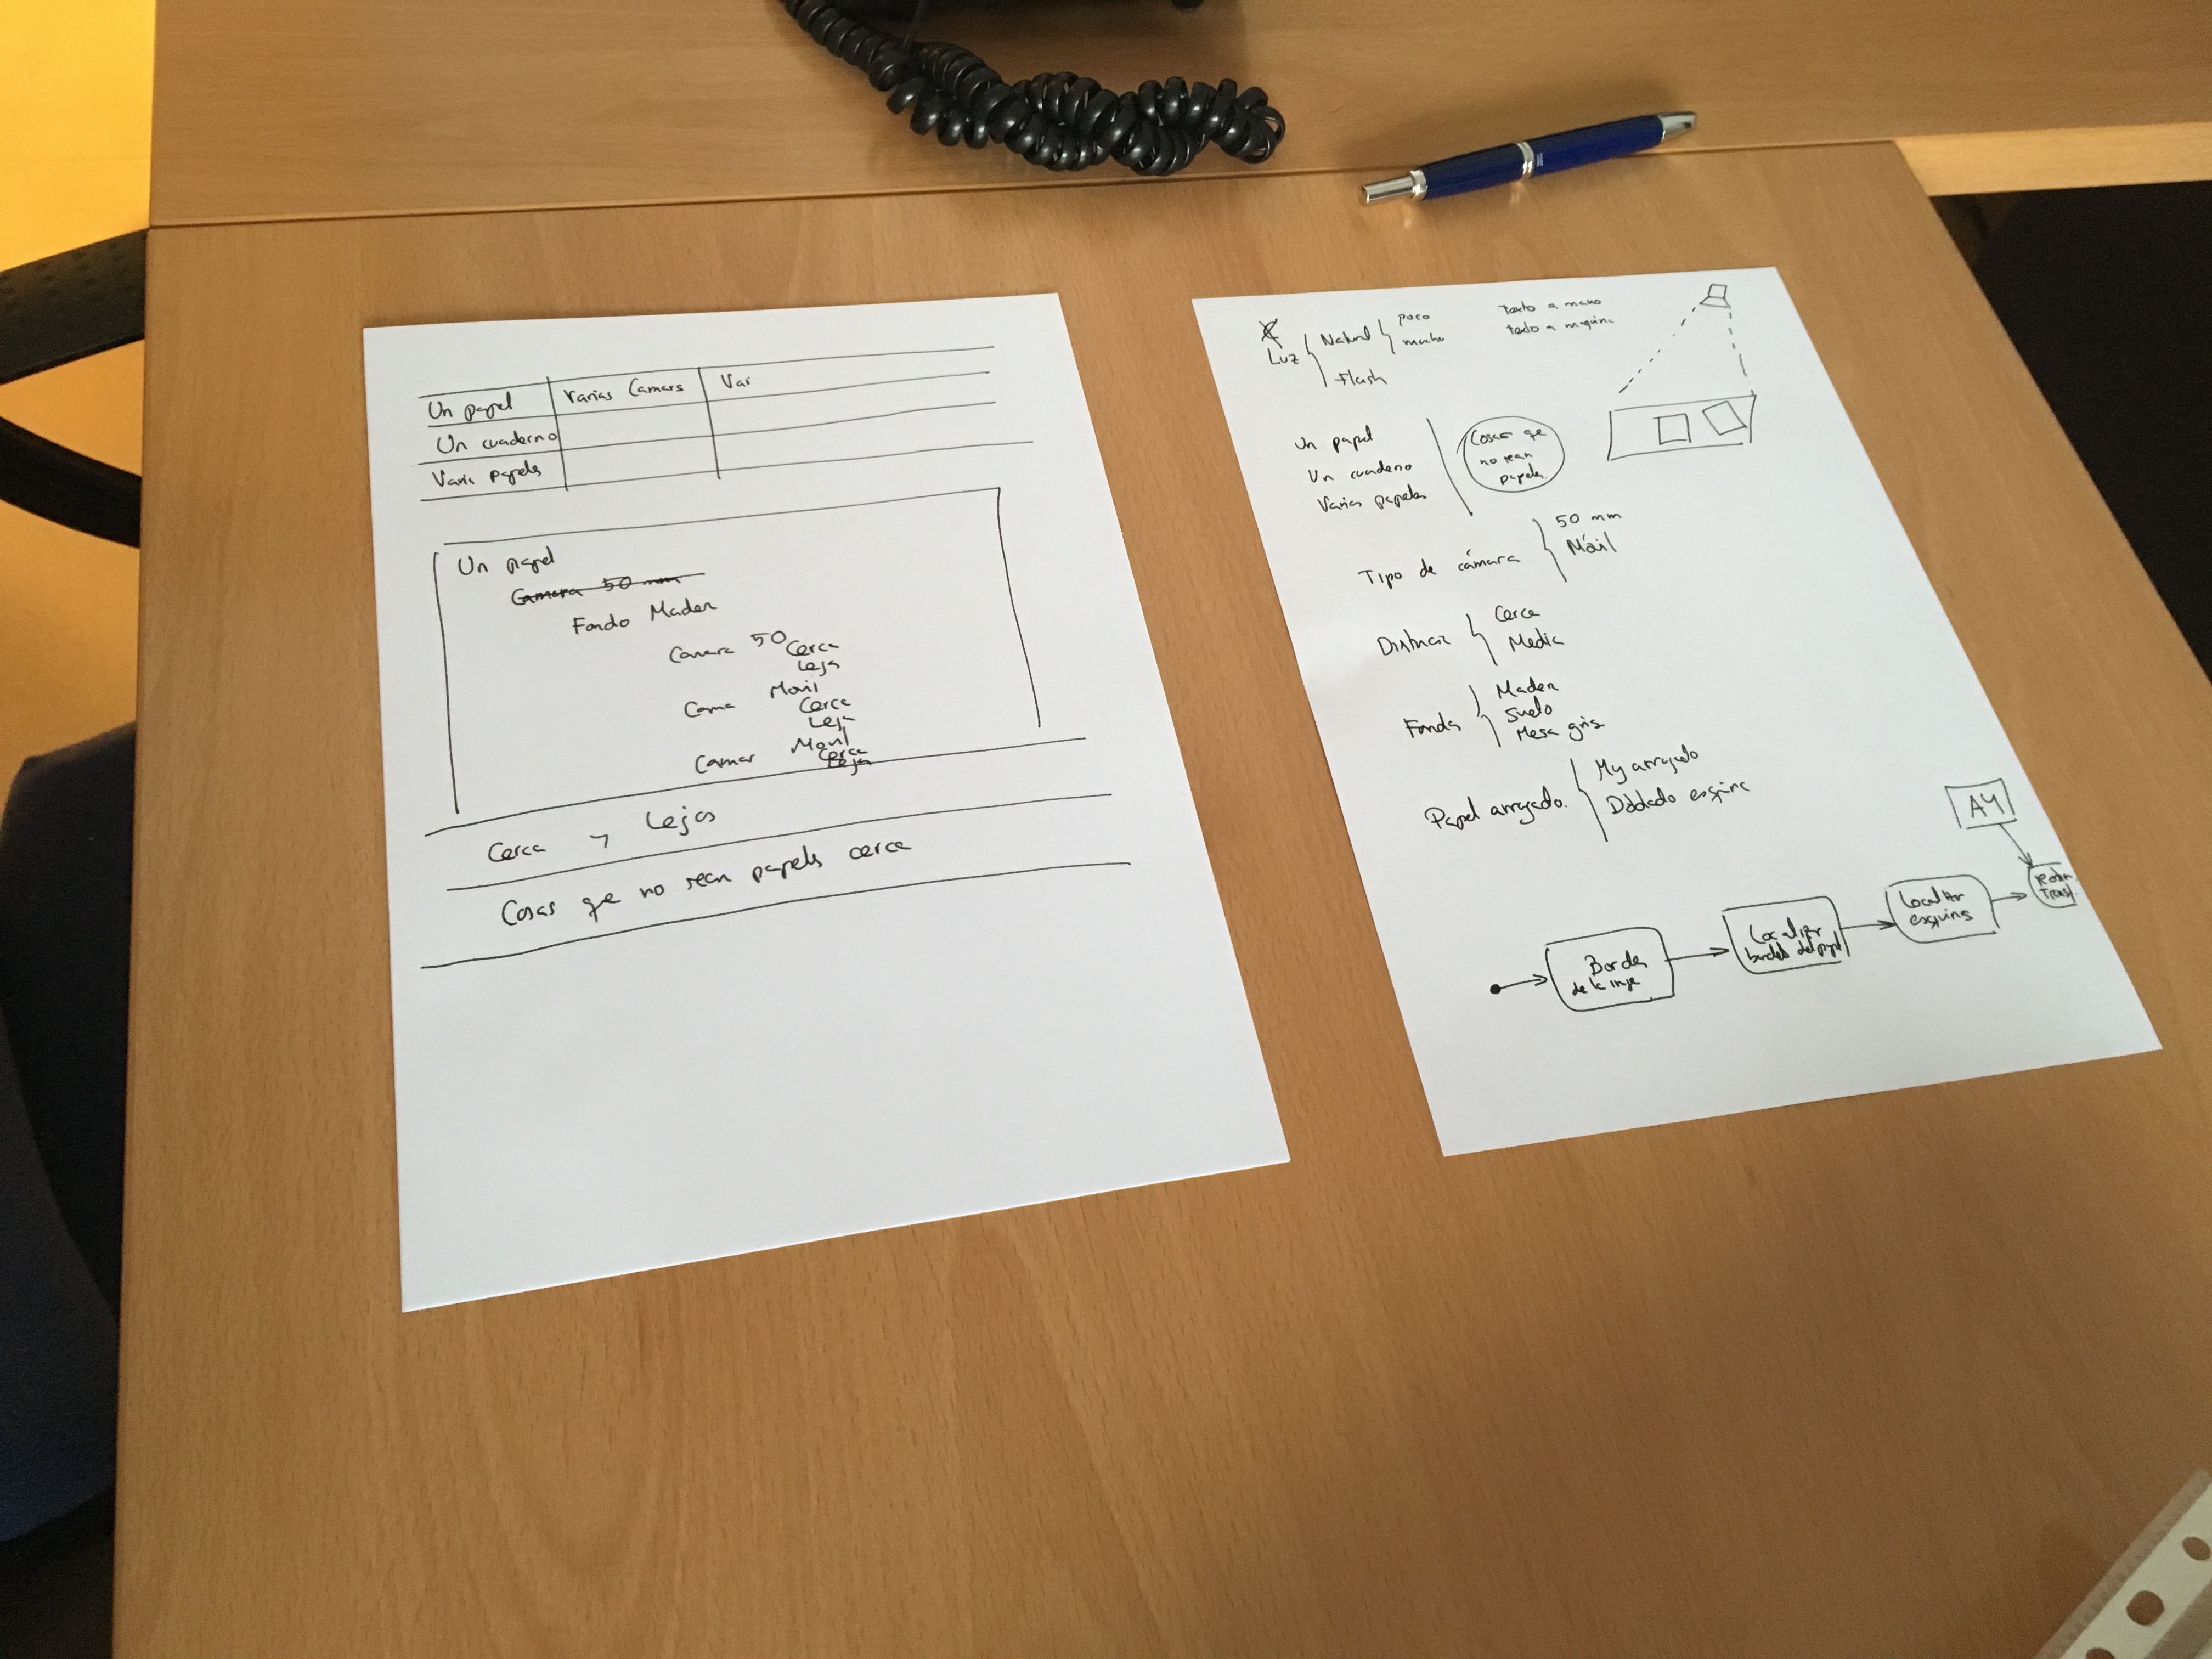 Varias Camars Var
Un papel
Un cuaderno
Varis papeles
Un papel
Camara 50 mm
Fondo Mader
Camara 50 Cerca
Lejs
Cama Movil
Cerca
Leja
Camar Movil
Cerca
Lejos
Cerca y Lejos
Cosas qe no sean papels cerca
poco
Luz Natural mucho
Flash
texto a mano
texto a maquina
Un papel
Un cuaderno
Varios papeles
Cosas que
no sean
papeles
Tipo de cámara 50 mm
Móvil
Distancia Cerca
Media
Fondos Mader
Suelo
Mesa gris
Papel arrugado. My arrugado
Doblado esquina
Bordes
de la imge
Localizar
bordes del papel
Localizar
esquins
A4